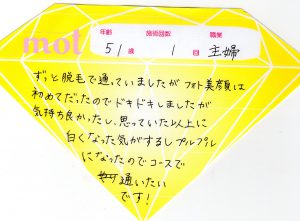 mot
年齢 施術回数 職業
51歳 1回 主婦
ずっと脱毛で通っていましたが フォト美顔は
初めてだったのでドキドキしましたが
気持ち良かったし、思っていた以上に
白くなった気がするし プルプル
になったのでコースで
通いたい
です!